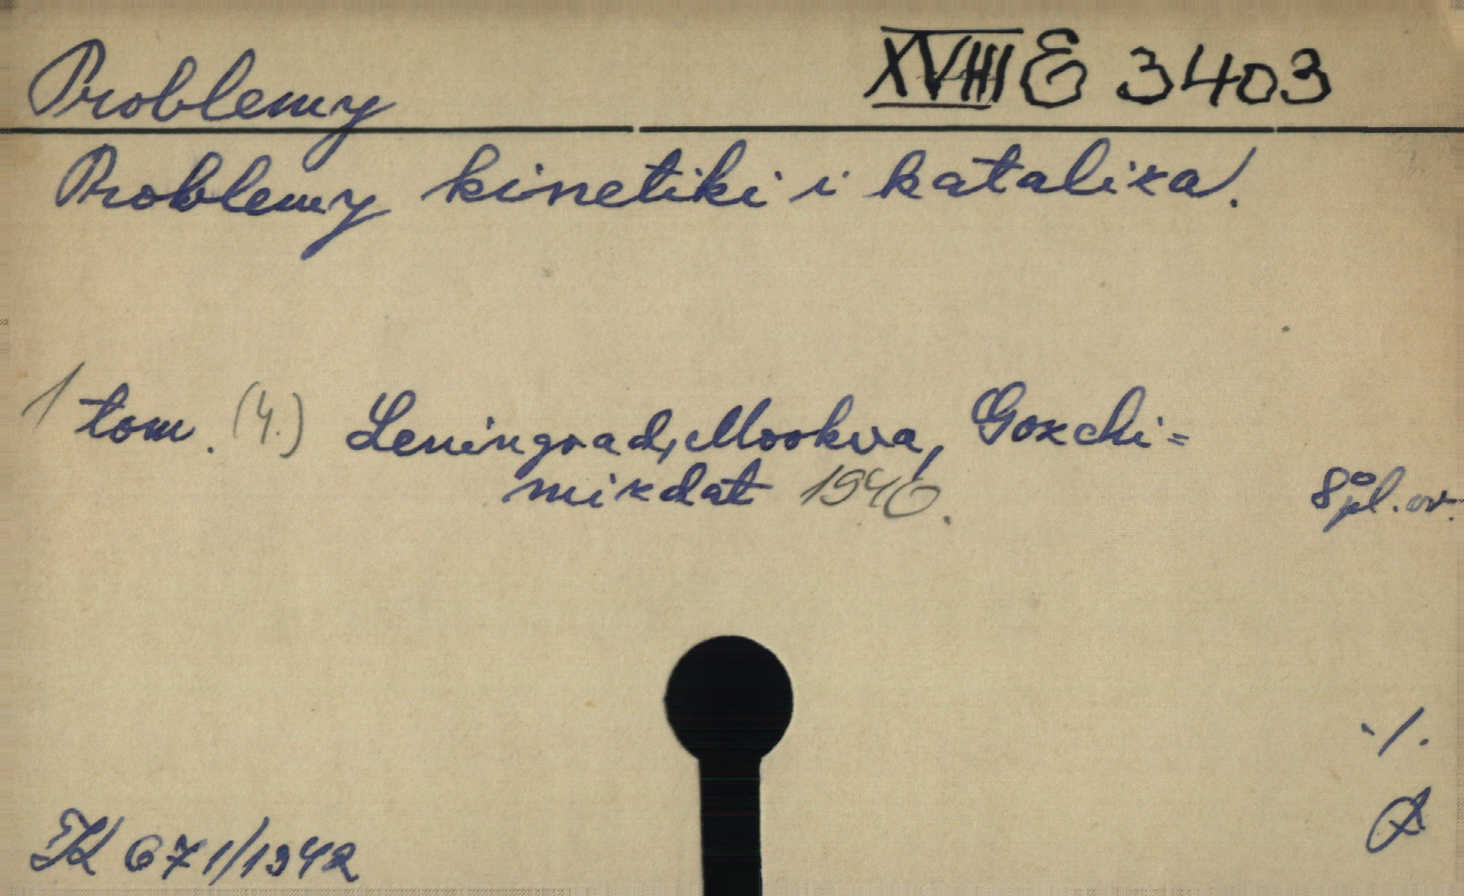 Problemy XVIII E 3403
Problemy kinetiki i kataliza.
1 tom. (4.) Leningrad, Moskva, Goschi=
mizdat 1940. 8° pl. or.
·/.
K 671/1942